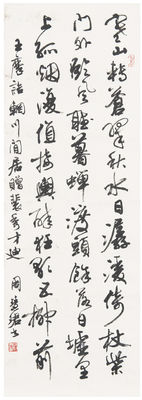 寒山轉蒼翠秋水日潺湲倚杖柴
門外臨風聽暮蟬渡頭餘落日墟里
上孤烟復值接輿醉狂歌五柳前
王摩詰輞川閒居贈裴秀才迪 周慧珺